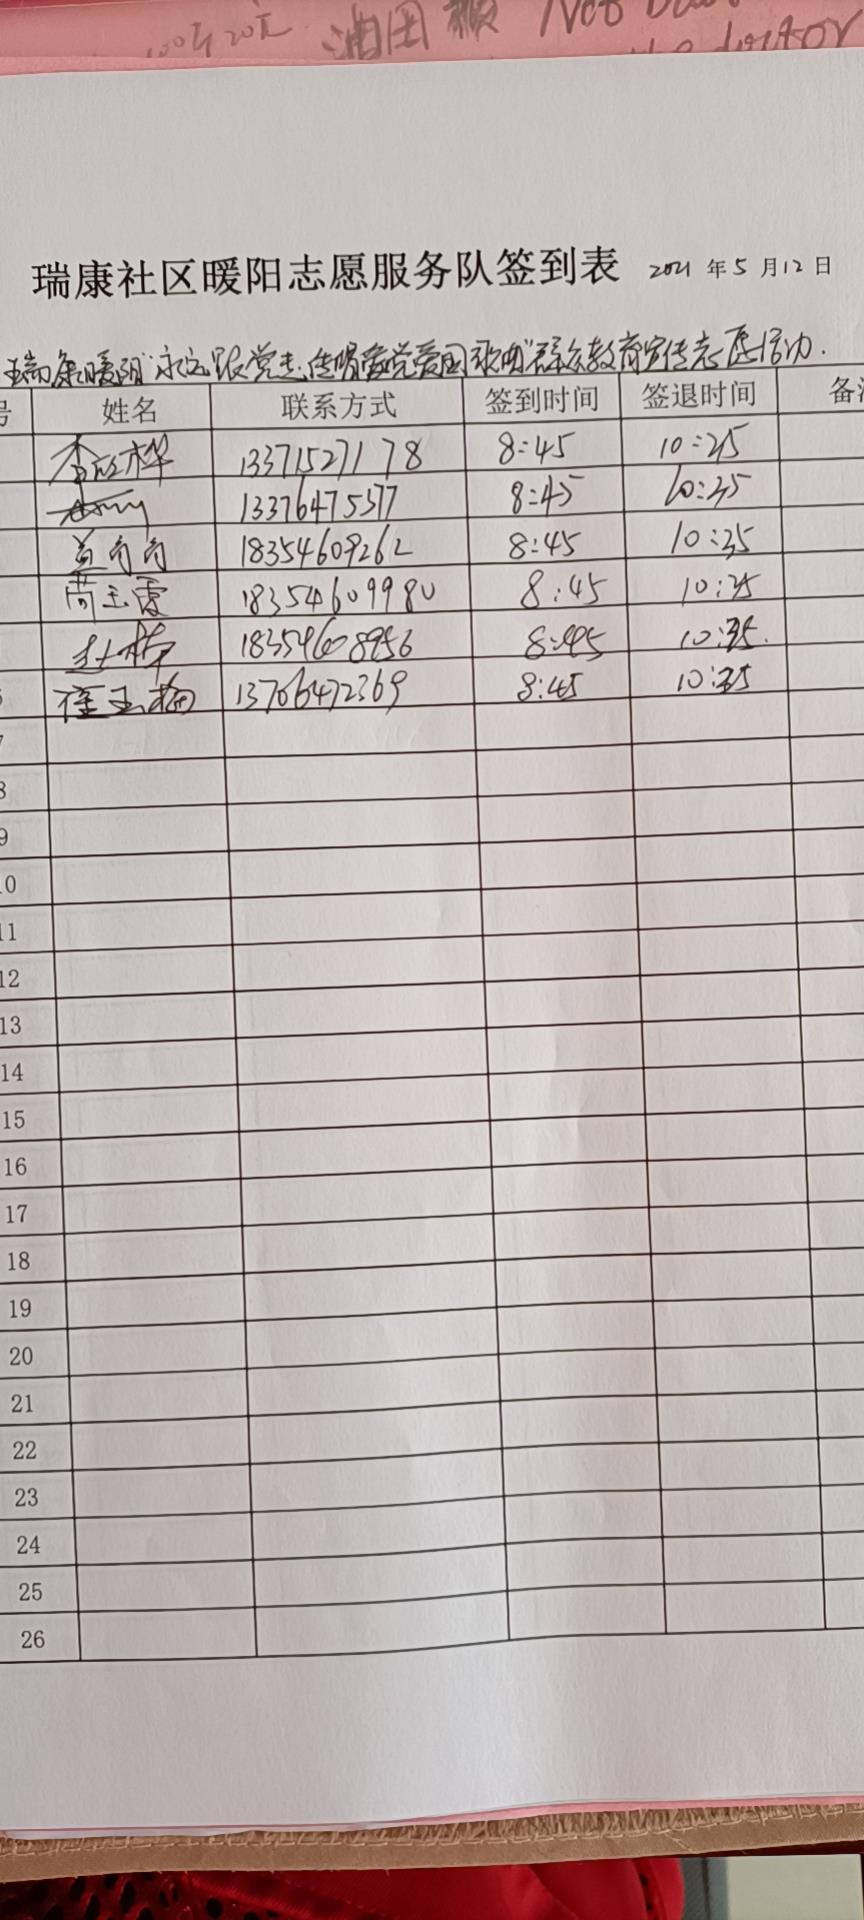 100年20元 油田 Not
doctor
瑞康社区暖阳志愿服务队签到表 2021 年 5 月 12 日
瑞康暖阳"永远跟党走,传唱爱党爱国歌曲"群众教育宣传志愿活动.
号 姓名 联系方式 签到时间 签退时间 备注
李 桦 13371527178 8:45 10:25
13376475377 8:45 10:35
18354609262 8:45 10:35
18354609980 8:45 10:35
杜 18354608956 8:45 10:35.
6 崔玉梅 13706472369 8:45 10:35
7
8
9
10
11
12
13
14
15
16
17
18
19
20
21
22
23
24
25
26